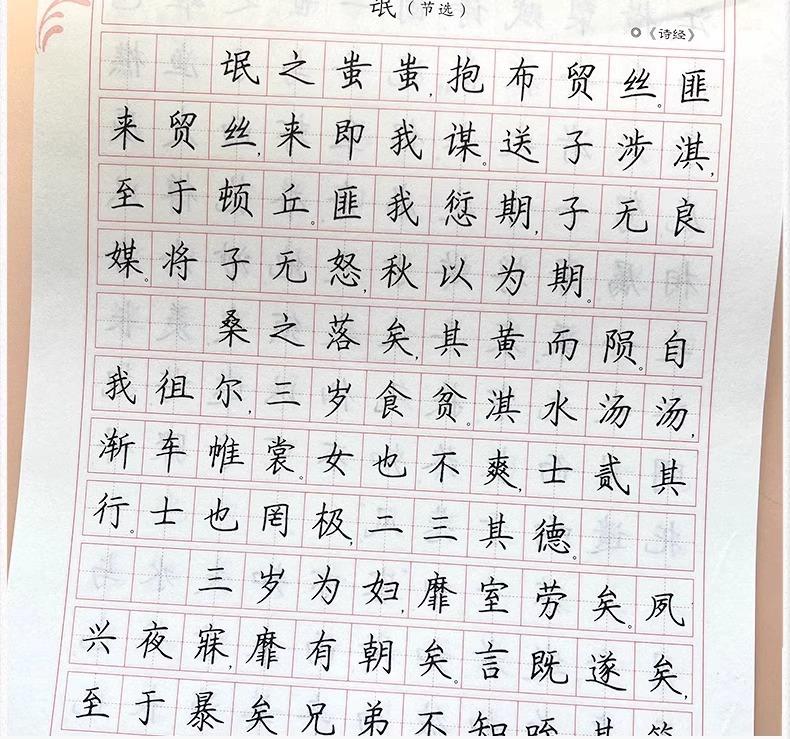 氓（节选）
《诗经》
氓之蚩蚩,抱布贸丝。匪
来贸丝,来即我谋。送子涉淇,
至于顿丘。匪我愆期,子无良
媒。将子无怒,秋以为期。
桑之落矣,其黄而陨。自
我徂尔,三岁食贫。淇水汤汤,
渐车帷裳。女也不爽,士贰其
行。士也罔极,二三其德。
三岁为妇,靡室劳矣。夙
兴夜寐,靡有朝矣。言既遂矣,
至于暴矣兄弟不知咥其笑